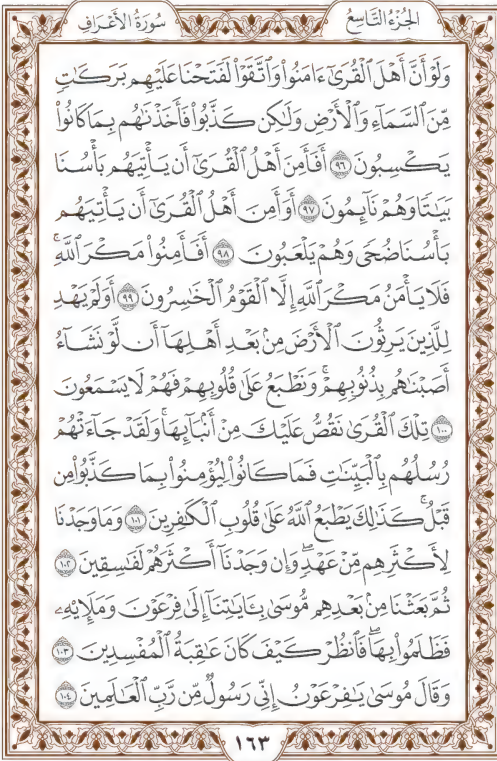 سُورَةُ الْأَعْرَافِ
الجُزْءُ التَّاسِعُ
وَلَوْ أَنَّ أَهْلَ ٱلْقُرَىٰٓ ءَامَنُوا۟ وَٱتَّقَوْا۟ لَفَتَحْنَا عَلَيْهِم بَرَكَـٰتٍ
مِّنَ ٱلسَّمَآءِ وَٱلْأَرْضِ وَلَـٰكِن كَذَّبُوا۟ فَأَخَذْنَـٰهُم بِمَا كَانُوا۟
يَكْسِبُونَ ٩٦ أَفَأَمِنَ أَهْلُ ٱلْقُرَىٰٓ أَن يَأْتِيَهُم بَأْسُنَا
بَيَـٰتًا وَهُمْ نَآئِمُونَ ٩٧ أَوَأَمِنَ أَهْلُ ٱلْقُرَىٰٓ أَن يَأْتِيَهُم
بَأْسُنَا ضُحًى وَهُمْ يَلْعَبُونَ ٩٨ أَفَأَمِنُوا۟ مَكْرَ ٱللَّهِ ۚ
فَلَا يَأْمَنُ مَكْرَ ٱللَّهِ إِلَّا ٱلْقَوْمُ ٱلْخَـٰسِرُونَ ٩٩ أَوَلَمْ يَهْدِ
لِلَّذِينَ يَرِثُونَ ٱلْأَرْضَ مِنۢ بَعْدِ أَهْلِهَآ أَن لَّوْ نَشَآءُ
أَصَبْنَـٰهُم بِذُنُوبِهِمْ ۚ وَنَطْبَعُ عَلَىٰ قُلُوبِهِمْ فَهُمْ لَا يَسْمَعُونَ
١٠٠ تِلْكَ ٱلْقُرَىٰ نَقُصُّ عَلَيْكَ مِنْ أَنۢبَآئِهَا ۚ وَلَقَدْ جَآءَتْهُمْ
رُسُلُهُم بِٱلْبَيِّنَـٰتِ فَمَا كَانُوا۟ لِيُؤْمِنُوا۟ بِمَا كَذَّبُوا۟ مِن
قَبْلُ ۚ كَذَٰلِكَ يَطْبَعُ ٱللَّهُ عَلَىٰ قُلُوبِ ٱلْكَـٰفِرِينَ ١٠١ وَمَا وَجَدْنَا
لِأَكْثَرِهِم مِّنْ عَهْدٍ ۖ وَإِن وَجَدْنَآ أَكْثَرَهُمْ لَفَـٰسِقِينَ ١٠٢
ثُمَّ بَعَثْنَا مِنۢ بَعْدِهِم مُّوسَىٰ بِـَٔايَـٰتِنَآ إِلَىٰ فِرْعَوْنَ وَمَلَإِي۟هِۦ
فَظَلَمُوا۟ بِهَا ۖ فَٱنظُرْ كَيْفَ كَانَ عَـٰقِبَةُ ٱلْمُفْسِدِينَ ١٠٣
وَقَالَ مُوسَىٰ يَـٰفِرْعَوْنُ إِنِّى رَسُولٌ مِّن رَّبِّ ٱلْعَـٰلَمِينَ ١٠٤
١٦٣